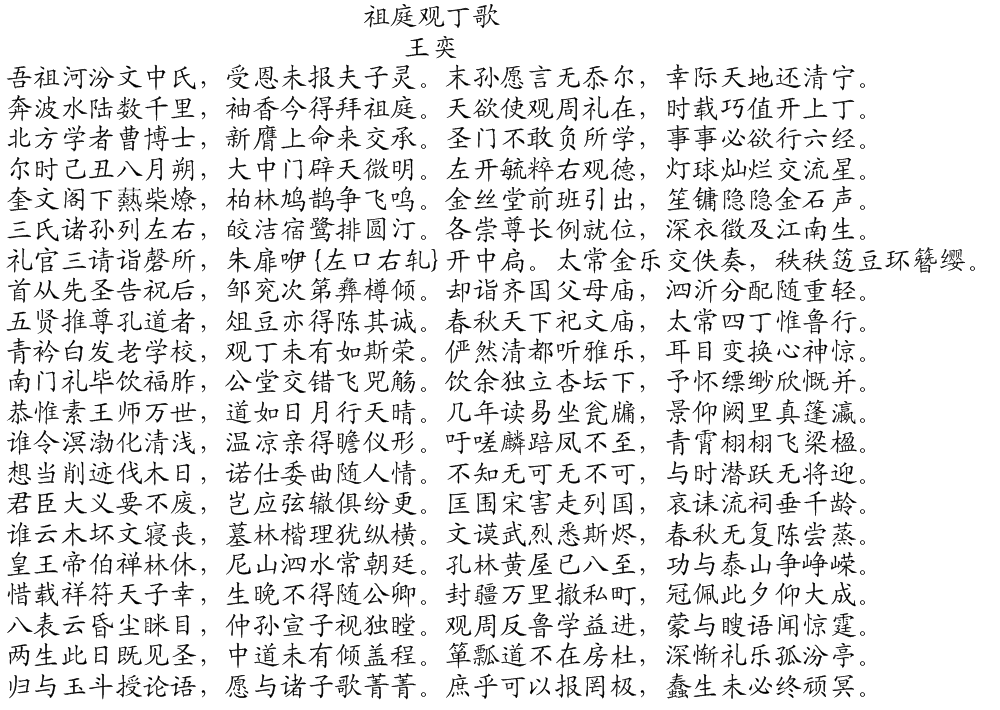 祖庭观丁歌
王奕
吾祖河汾文中氏，受恩未报夫子灵。末孙愿言无忝尔，幸际天地还清宁。
奔波水陆数千里，袖香今得拜祖庭。天欲使观周礼在，时载巧值开上丁。
北方学者曹博士，新膺上命来交承。圣门不敢负所学，事事必欲行六经。
尔时己丑八月朔，大中门辟天微明。左开毓粹右观德，灯球灿烂交流星。
奎文阁下爇柴燎，柏林鸠鹊争飞鸣。金丝堂前班引出，笙镛隐隐金石声。
三氏诸孙列左右，皎洁宿鹭排圆汀。各崇尊长例就位，深衣徵及江南生。
礼官三请诣罄所，朱扉咿{左口右轧}开中扃。太常金乐交佚奏，秩秩笾豆环簪缨。
首从先圣告祝后，邹兖次第彝樽倾。却诣齐国父母庙，泗沂分配随重轻。
五贤推尊孔道者，俎豆亦得陈其诚。春秋天下祀文庙，太常四丁惟鲁行。
青衿白发老学校，观丁未有如斯荣。俨然清都听雅乐，耳目变换心神惊。
南门礼毕饮福胙，公堂交错飞咒觞。饮余独立杏坛下，予怀缥缈欣慨并。
恭惟素王师万世，道如日月行天晴。几年读易坐瓮牖，景仰阙里真篷瀛。
谁令溟渤化清浅，温凉亲得瞻仪形。吁嗟麟踣凤不至，青霄栩栩飞梁楹。
想当削迹伐木日，诺仕委曲随人情。不知无可无不可，与时潜跃无将迎。
君臣大义要不废，岂应弦辙俱纷更。匡围宋害走列国，哀诔流祠垂千龄。
谁云木坏文寝丧，墓林楷理犹纵横。文谟武烈悉斯烬，春秋无复陈尝蒸。
皇王帝伯禅林休，尼山泗水常朝廷。孔林黄屋已八至，功与泰山争峥嵘。
惜载祥符天子幸，生晚不得随公卿。封疆万里撤私町，冠佩此夕仰大成。
八表云昏尘眯目，仲孙宣子视独瞠。观周反鲁学益进，蒙与瞍语闻惊霆。
两生此日既见圣，中道未有倾盖程。箪瓢道不在房杜，深惭礼乐孤汾亭。
归与玉斗授论语，愿与诸子歌菁菁。庶乎可以报罔极，蠢生未必终顽冥。